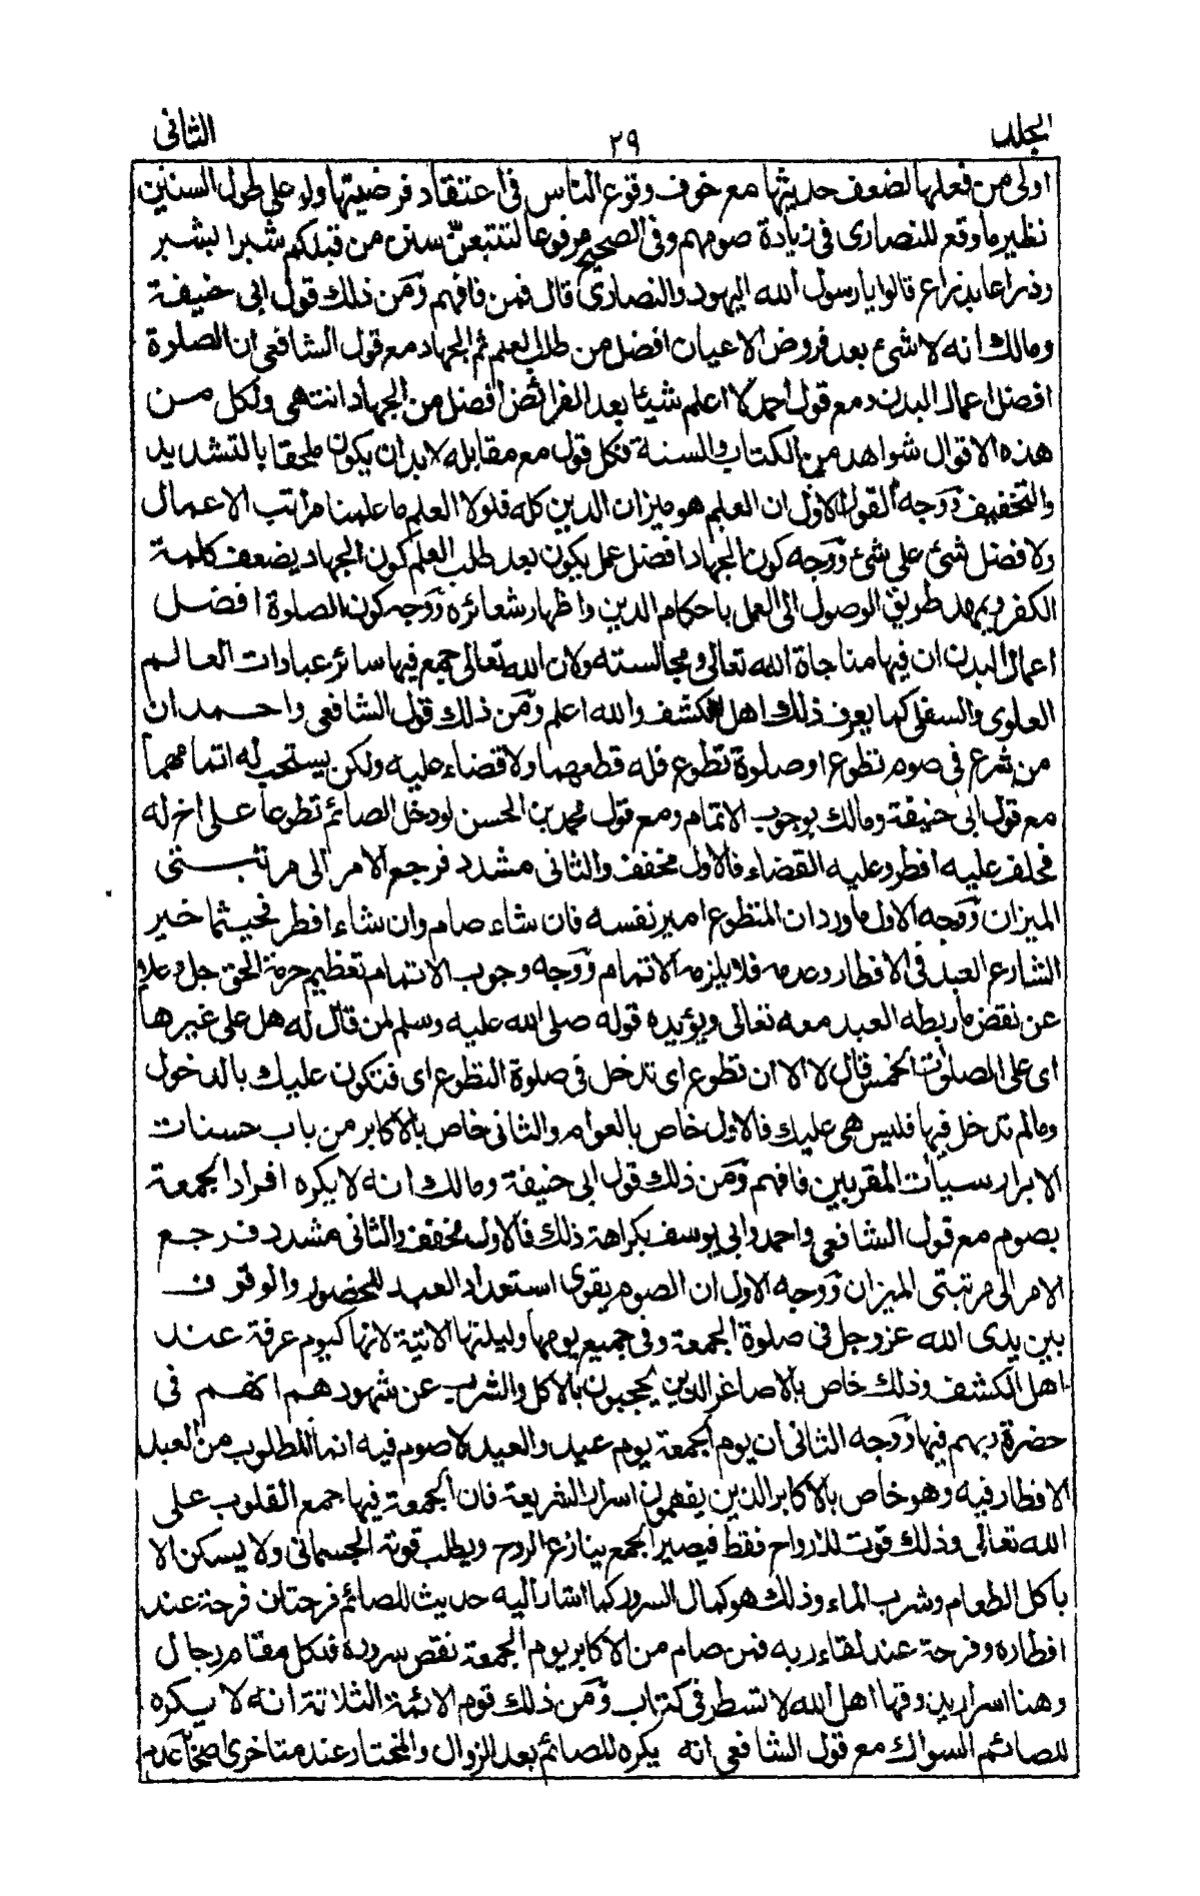 المجلد ٢٩ الثانى
اولى من فعلها لضعف حديثها مع خوف وقوع الناس فى اعتقاد فرضيتها ولو على طول السنين
نظير ما وقع للنصارى فى زيادة صومهم وفى الصحيح مرفوعا لتتبعن سنن من قبلكم شبرا بشبر
وذراعا بذراع قالوا يا رسول الله اليهود والنصارى قال فمن فافهم ومن ذلك قول ابى حنيفة
ومالك انه لا شئ بعد فروض الاعيان افضل من طلب العلم ثم الجهاد مع قول الشافعى ان الصلوة
افضل اعمال البدن ومع قول احمد لا اعلم شيئا بعد الفرائض افضل من الجهاد انتهى ولكل من
هذه الاقوال شواهد من الكتاب والسنة فكل قول مع مقابله لا بد ان يكون ملحقا بالتشديد
والتخفيف ووجه القول الاول ان العلم هو ميزان الدين كله فلولا العلم ما علمنا مراتب الاعمال
ولا فضل شئ على شئ ووجه كون الجهاد افضل عمل يكون بعد طلب العلم كون الجهاد يضعف كلمة
الكفر ويمهد طريق الوصول الى العمل باحكام الدين واظهار شعائره ووجه كون الصلوة افضل
اعمال البدن ان فيها مناجاة الله تعالى ومجالسته ولان الله تعالى جمع فيها سائر عبادات العالم
العلوى والسفلى كما يعرف ذلك اهل الكشف والله اعلم ومن ذلك قول الشافعى واحمد ان
من شرع فى صوم تطوع او صلوة تطوع فله قطعهما ولا قضاء عليه ولكن يستحب له اتمامهما
مع قول ابى حنيفة ومالك بوجوب الاتمام ومع قول محمد بن الحسن لو دخل الصائم تطوعا على اخ له
فحلف عليه افطر وعليه القضاء فالاول مخفف والثانى مشدد فرجع الامر الى مرتبتى
الميزان ووجه الاول ما ورد ان المتطوع امير نفسه فان شاء صام وان شاء افطر فحيثما خير
الشارع العبد فى الافطار وعدمه فلا يلزمه الاتمام ووجه وجوب الاتمام تعظيم حرمة الحق جل وعلا
عن نقض ما ربطه العبد معه تعالى ويؤيده قوله صلى الله عليه وسلم لمن قال له هل على غيرها
اى على الصلوات الخمس قال لا الا ان تطوع اى تدخل فى صلوة التطوع اى فتكون عليك بالدخول
وما لم تدخل فيها فليس هى عليك فالاول خاص بالعوام والثانى خاص بالاكابر من باب حسنات
الابرار سيأت المقربين فافهم ومن ذلك قول ابى حنيفة ومالك انه لا يكره افراد الجمعة
بصوم مع قول الشافعى واحمد وابى يوسف بكراهة ذلك فالاول مخفف والثانى مشدد فرجع
الامر الى مرتبتى الميزان ووجه الاول ان الصوم يقوى استعداد العبد للحضور والوقوف
بين يدى الله عز وجل فى صلوة الجمعة وفى جميع يومها وليلتها الاتية لانها كيوم عرفة عند
اهل الكشف وذلك خاص بالاصاغر الذين يحجبون بالاكل والشرب عن شهودهم انهم فى
حضرة ربهم فيها ووجه الثانى ان يوم الجمعة يوم عيد والعيد لا صوم فيه انما المطلوب من العبد
الافطار فيه وهو خاص بالاكابر الذين يفهمون اسرار الشريعة فان الجمعة فيها جمع القلوب على
الله تعالى وذلك قوت للارواح فقط فيصير الجمع ينازع الروح ويطلب قوته الجسمانى ولا يسكن الا
باكل الطعام وشرب الماء وذلك هو كمال السرور كما اشار اليه حديث للصائم فرحتان فرحة عند
افطاره وفرحة عند لقاء ربه فمن صام من الاكابر يوم الجمعة نقص سروره فلكل مقام رجال
وهنا اسرار يذوقها اهل الله لا تسطر فى كتاب ومن ذلك قوم الائمة الثلاثة انه لا يكره
للصائم السواك مع قول الشافعى انه يكره للصائم بعد الزوال والمختار عند متاخرى اصحابه عدم